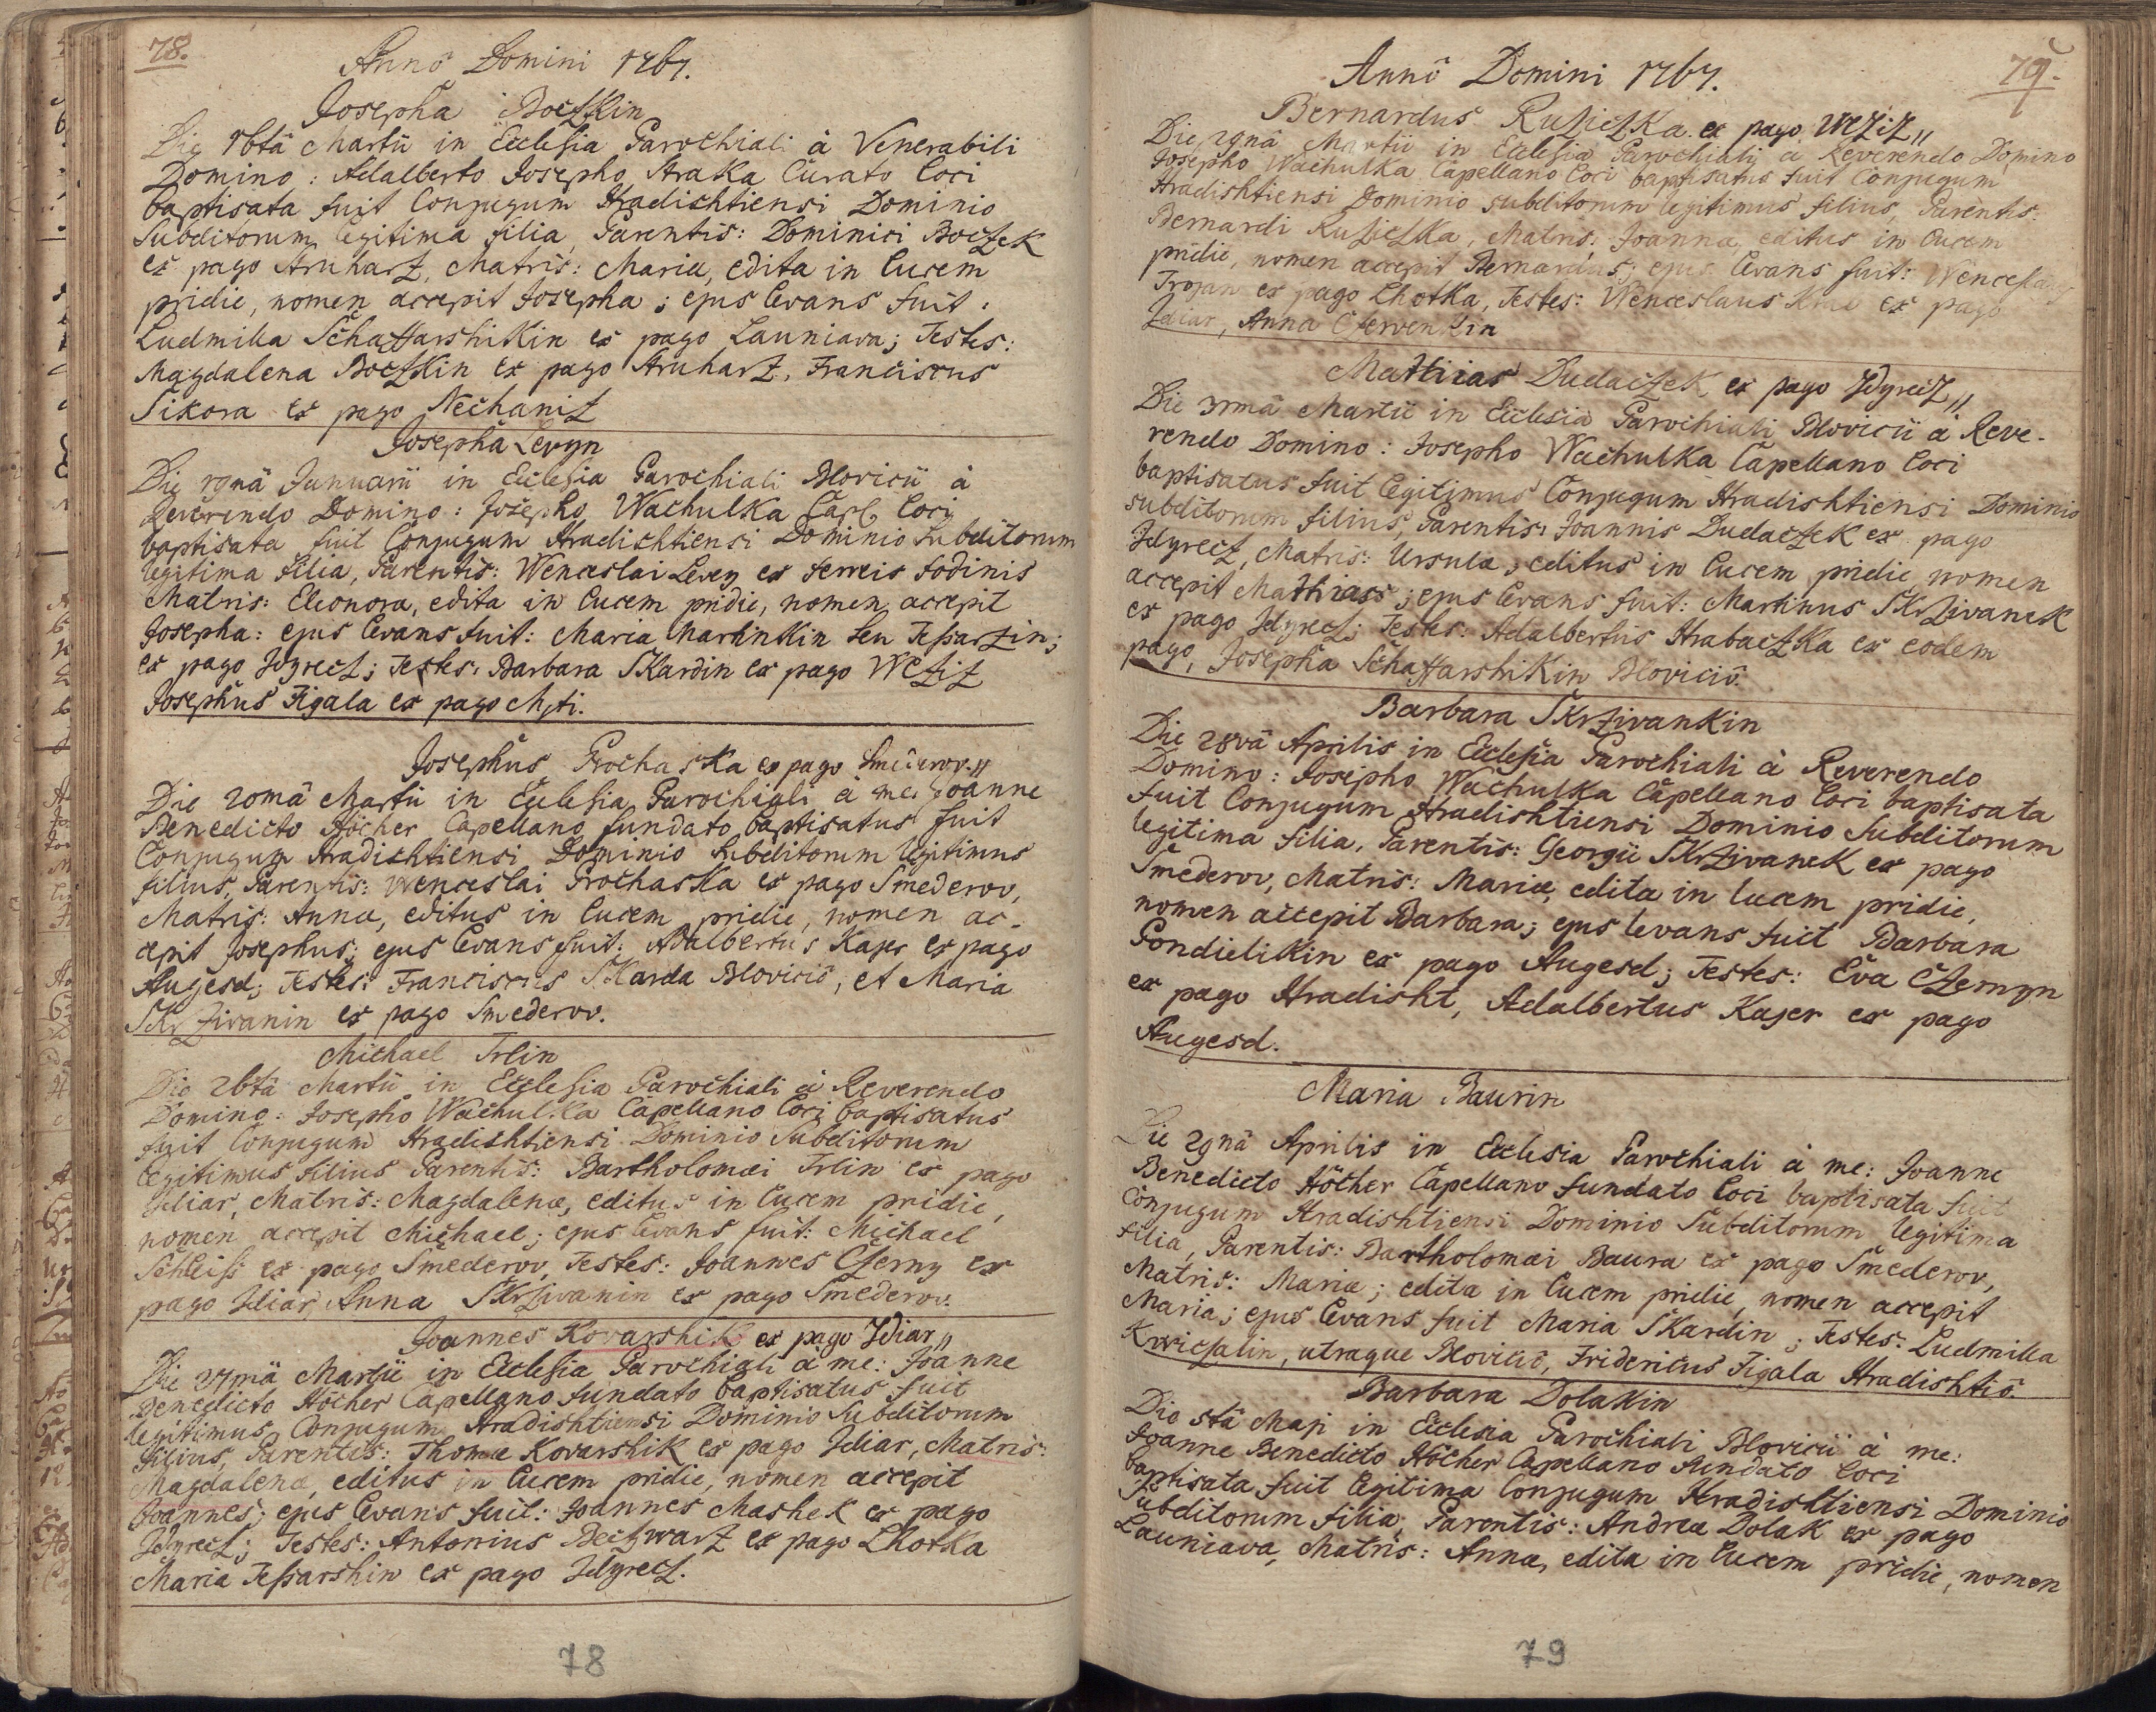 78.
Anno Domini 1767.
Josepha Boczkin
Die 16tâ Martii in Ecclesia Parochiali à Venerabili
Domino: Adalberto Josepho Straka Curato loci
baptisata fuit Conjugum Hradishtiensi Dominio
Subditorum, legitima filia, Parentis: Dominici Boczek
ex pago Struharz, Matris: Mariæ, edita in lucem
pridie, nomen accepit Josepha; ejus levans fuit:
Ludmilla Schaffarshikin ex pago Launiava; Testes:
Magdalena Boczkin ex pago Struharz, Franciscus
Sikora ex pago Nechaniz
Josepha Levyn
Die 19nâ Januarii in Ecclesia Parochiali Blovicii à
Reverendo Domino: Josepho Wachulka Capl. loci
baptisata fuit Conjugum Hradishtiensi Dominio Subditorum
legitima filia, Parentis: Wenceslai Levy ex ferreis fodinis
Matris: Eleonora, edita in lucem pridie, nomen accepit
Josepha: ejus levans fuit: Maria Martinkin seu Teßarzin;
ex pago Zdyrecz; Testes: Barbara Skardin ex pago Weziz
Josephus Figala ex pago Mzti.
Josephus Prochaska ex pago Smederov."
Die 20mâ Martii in Ecclesia Parochiali à me: Joanne
Benedicto Höcher Capellano fundato baptisatus fuit
Conjugum Hradishtiensi Dominio Subditorum legitimus
filius, Parentis: Wenceslai Prochaska ex pago Smederov,
Matris: Annæ, editus in lucem pridie, nomen ac-
cepit Josephus; ejus levans fuit: Adalbertus Kajer ex pago
Augesd; Testes: Franciscus Skarda Blovicio, et Maria
Skrzivanin ex pago Smederov.
Michael Trlin
Die 26tâ Martii in Ecclesia Parochiali à Reverendo
Domino: Josepho Wachulka Capellano loci baptisatus
fuit Conjugum Hradishtiensi Dominio Subditorum
legitimus filius Parentis: Bartholomæi Trlin ex pago
Zdiar, Matris: Magdalenæ, editus in lucem pridie,
nomen accepit Michael; ejus levans fuit: Michael
Schleiß ex pago Smederov, Testes: Joannes Czerny ex
pago Zdiar, Anna Skrzivanin ex pago Smederov.
Joannes Kovarshik ex pago Zdiar"
Die 27mâ Martii in Ecclesia Parochiali à me: Joanne
Benedicto Höcher Capellano fundato baptisatus fuit
legitimus Conjugum Hradishtiensi Dominio Subditorum
filius, Parentis: Thomæ Kovarshik ex pago Zdiar, Matris:
Magdalenæ, editus in lucem pridie, nomen accepit
Joannes; ejus levans fuit: Joannes Mashek ex pago
Zdyrecz; Testes: Antonius Beczwarz ex pago Lhotka
Maria Teßarshin ex pago Zdyrecz.
78
79.
Anno Domini 1767.
Bernardus Ruziczka ex pago Weziz"
Die 29nâ Martii in Ecclesia Parochiali à Reverendo Domino
Josepho Wachulka Capellano loci baptisatus fuit Conjugum
Hradishtiensi Dominio subditorum legitimus filius, Parentis:
Bernardi Ruziczka, Matris: Joanna, editus in lucem
pridie, nomen accepit Bernardus; ejus levans fuit: Wenceslaus
Trojan ex pago Lhotka, Testes: Wenceslaus ex pago
Zdiar, Anna Czervenkin
Mathias Dudaczek ex pago Zdyrecz"
Die 31mâ Martii in Ecclesia Parochiali Blovicii à Reve-
rendo Domino: Josepho Wachulka Capellano loci
baptisatus fuit legitimus Conjugum Hradishtiensi Dominio
subditorum filius, Parentis: Joannis Dudaczek ex pago
Zdyrecz, Matris: Ursulæ, editus in lucem pridie, nomen
accepit Mathias; ejus levans fuit: Martinus Skrzivanek
ex pago Zdyrecz; Testes: Adalbertus Hrabaczka ex eodem
pago, Josepha Schaffarshikin Blovicio.
Barbara Skrzivankin
Die 28vâ Aprilis in Ecclesia Parochiali à Reverendo
Domino: Josepho Wachulka Capellano loci baptisata
fuit Conjugum Hradishtiensi Dominio Subditorum
legitima filia, Parentis: Georgii Skrzivanek ex pago
Smederov, Matris: Mariæ, edita in lucem pridie,
nomen accepit Barbara; ejus levans fuit Barbara
Pondielikin ex pago Augesd; Testes: Eva Czernyn
ex pago Hradisht, Adalbertus Kajer ex pago
Augesd.
Maria Baurin
Die 29nâ Aprilis in Ecclesia Parochiali à me: Joanne
Benedicto Höcher Capellano fundato loci baptisata fuit
Conjugum Hradishtiensi Dominio Subditorum legitima
filia, Parentis: Bartholomæi Baura ex pago Smederov,
Matris: Mariæ; edita in lucem pridie, nomen accepit
Maria; ejus levans fuit Maria Skardin; Testes: Ludmilla
Kwiczalin, utraque Blovicio, Fridericus Figala Hradishtio
Barbara Dolakin
Die 5tâ Maji in Ecclesia Parochiali Blovicii à me:
Joanne Benedicto Höcher Capellano fundato loci
baptisata fuit legitima Conjugum Hradishtiensi Dominio
Subditorum filia, Parentis: Andreæ Dolak ex pago
Launiava, Matris: Annæ, edita in lucem pridie, nomen
79